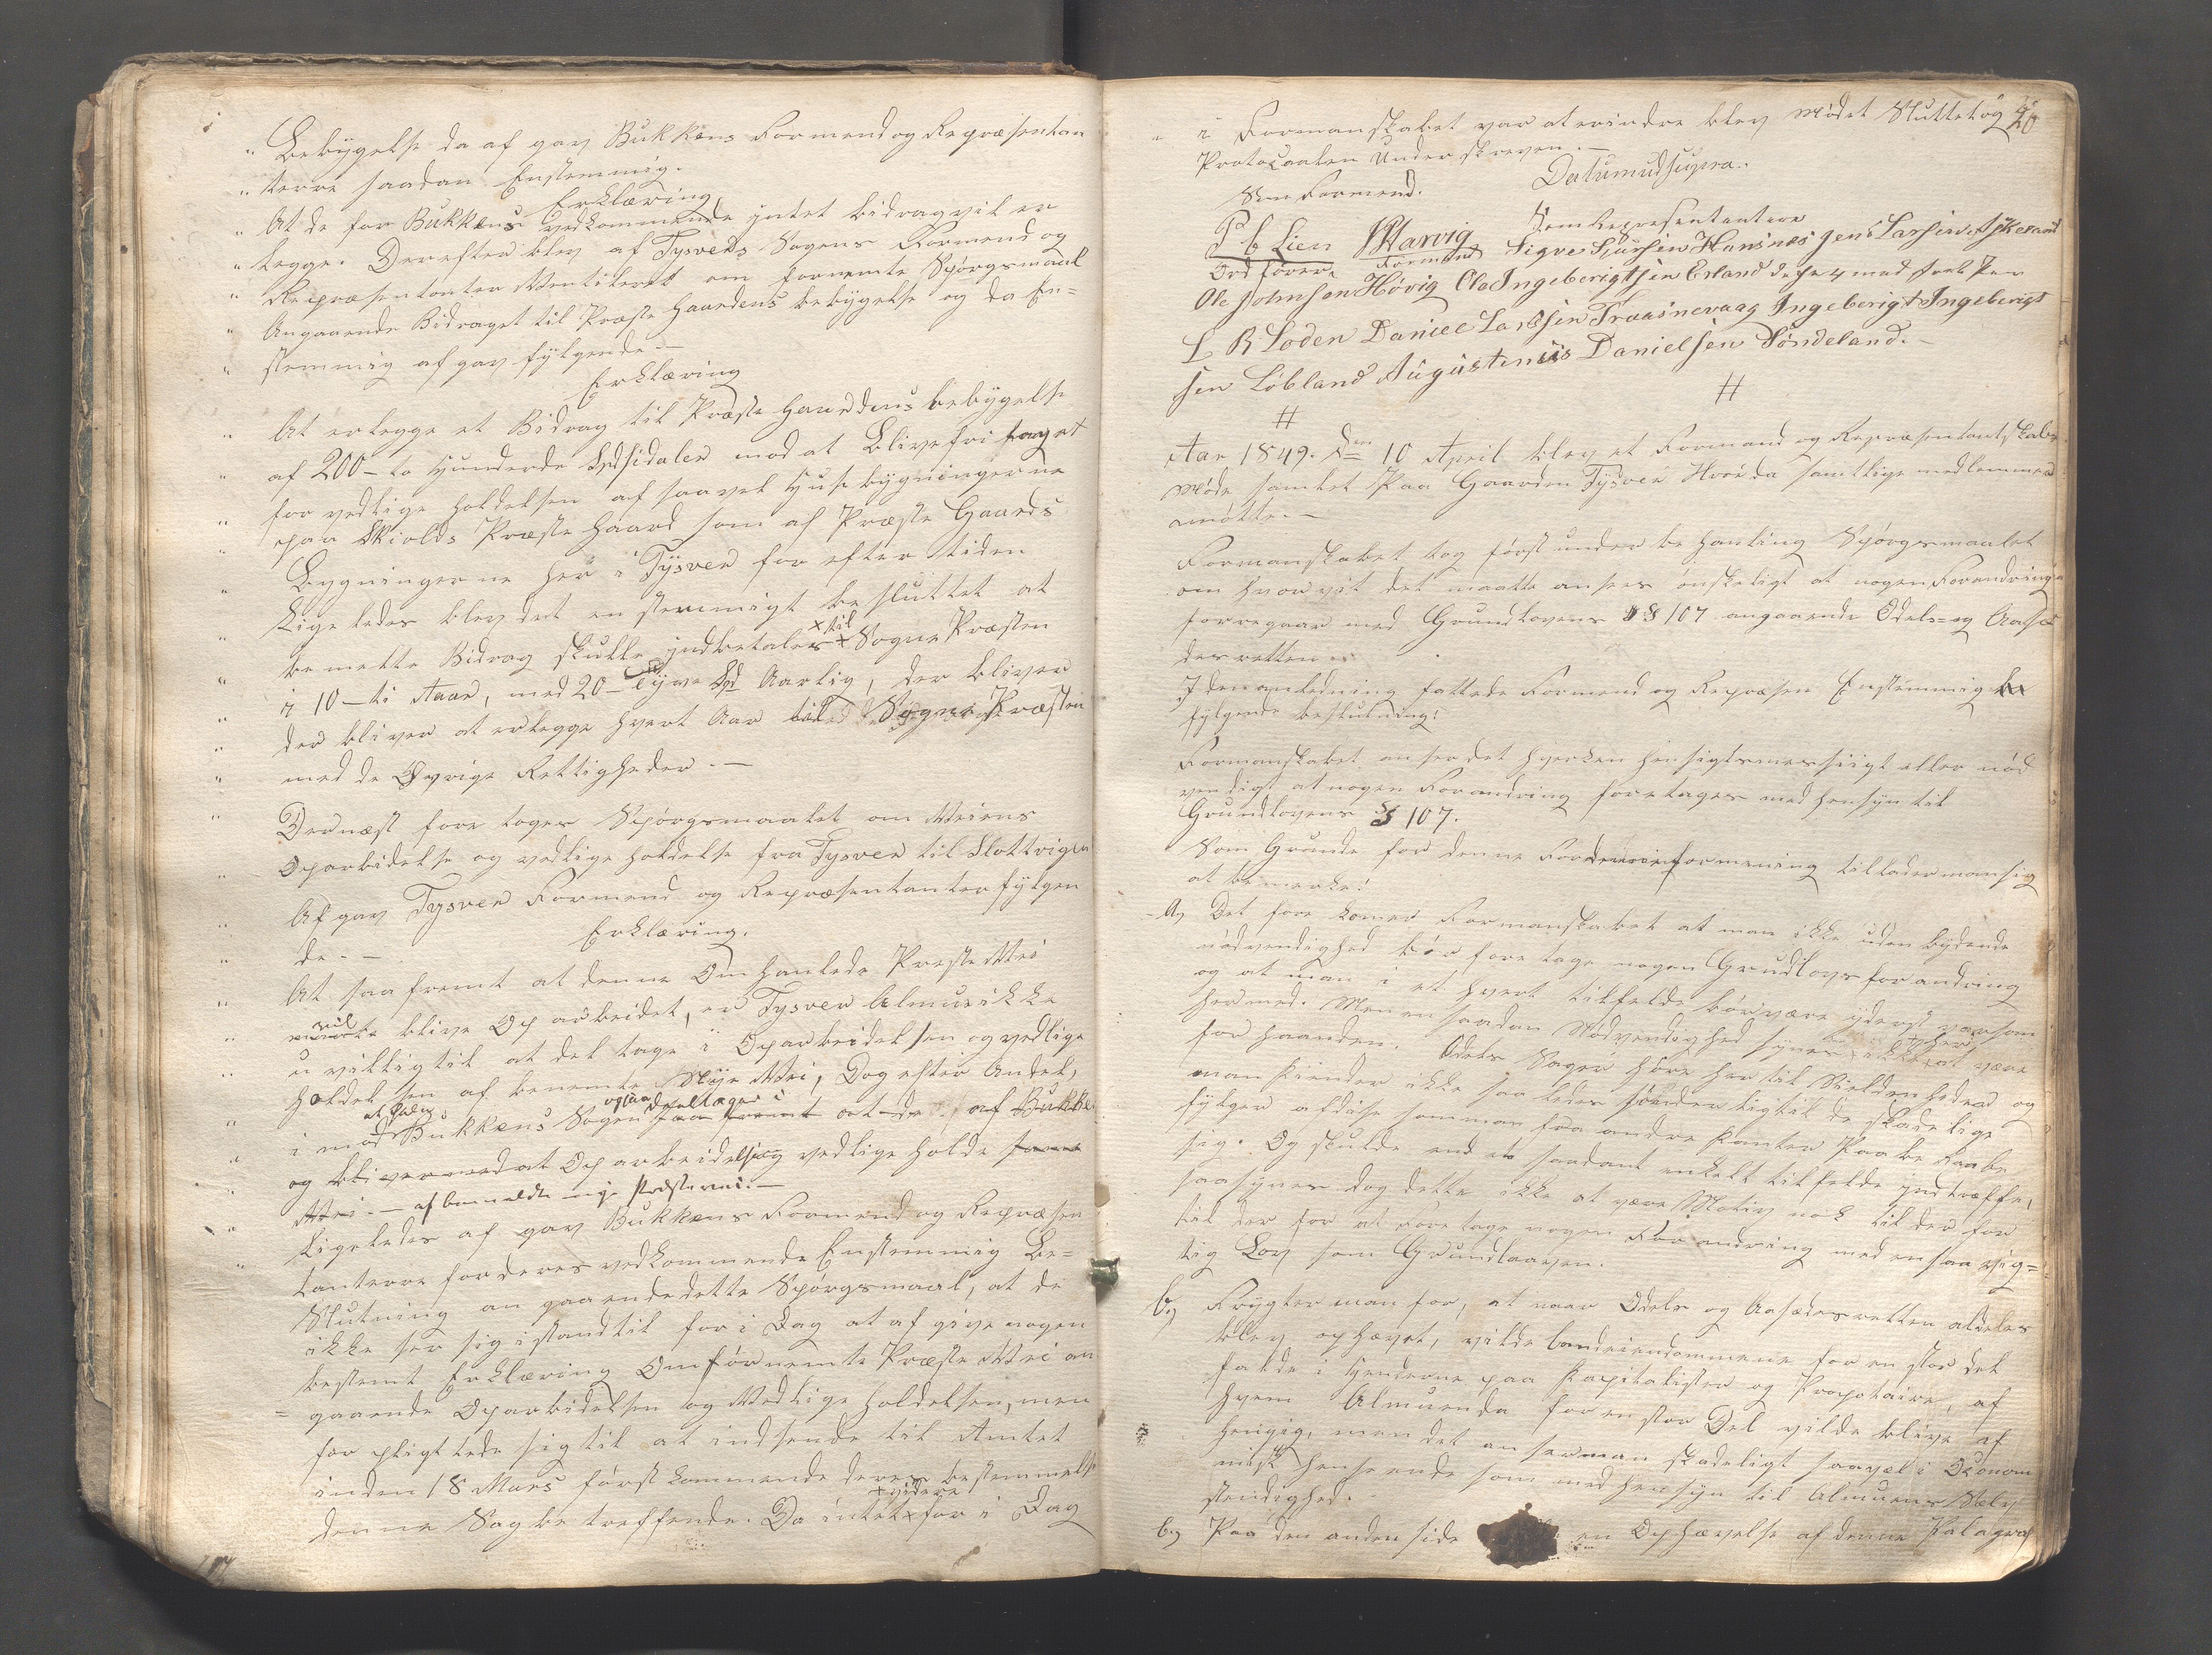 Bebygelse da af gav Bukkens Formend og Repræsentan
terre saadan Enstemmig.
Erklæring
At de for Bukkens vedkommende yntet bidrag vil er
legge. Derefter blev af Tysvers Sogens Formend og
Repræsentanter Ventileret om fornemte Spørgsmaal
Angaaende Bidraget til Præste Gaardens bebygelse og da En=
stemmig af gav fylgende.—
Erklæring
At erlegge et Bidrag til Præste Gaardens bebygelse
af 200 – to Hunderde Spdsidaler mod at Blive fri taget
for vedlige holdelsen af saavel Huse bygningerne
paa Skiolds Præste Gaard som af Præste Gaards
Bygningerne her i Tysver for efter tiden
Lige ledes blev det enstemmigt besluttet at
be melte Bidrag skulle yndbetales × til × Sogne Præsten
i 10 – ti Aaar, med 20 – Tyve Spd Aarlig, der bliver
der bliver at erlegge hvert Aar til Sogne Præsten
med de Øvrige Rettigheder.—
Dernæst fore toges Spørgsmaalet om Veiens
Oparbidelse og vedlige holdelse fra Tysver til Slottvigen
Af gav Tysver Formend og Repræsentanter fylgen
de.— Erklæring.
At saa fremt at denne Om hanlede Preste Vei
vil blive Op arbeidet, er Tysver Almue ikke
u villig til at del tage i Oparbeidelsen og vedlige
holdelsen af benemte Nye Vei, Dog efter Andel,
i mod at Bukkens Sogen ogsaa deeltager i saa fremt at de af Bukke
og bliver ved at Op arbeidelse og vedlige holde samme
Vei.— af bemeldte nye Prestevei.—
Ligeledes af gav Bukkens Formend og Repræsen
tanterre for deres vedkommende Enstemmig Be=
slutning an gaaende dette Spørgsmaal, at de
ikke ser sig i stand til for i Dag at af give nogen
bestemt Erklæring Om før nemte Præste Vei an
gaaende Oparbidelsen og Vedlige holdelsen, men
for pligtede sig til at indsende til Amtet
inden 18 Mars først kommende deres bestemmelse
denne Sag be treffende. Da intet × videre × for i Dag
20
i Formanskabet var at erindre blev Mødet Sluttet og
Protocaalen Under skreven.—
Datumudsupra.
Som Formend.
Som Representantere
P C Lien Harvig Sigve Sjursen Hansnes Jens Larsen Askeland
Ordfører. Formand
Ole Johnsen Høvig Ole Ingeberigtsen Erland
L R Loden Daniel Larsen Traasnevaag Ingeberigt Ingeberigt
sen Løbland Augustenus Danielsen Søndeland.—
#
#
Aar 1849. Den 10 April blev et Formand og Repræsentantskabs
Møde samlet Paa Gaarden Tysver Hvor da samtlige medlemmer
møtte.—
Formanskabet tog først under be hanling Spørgsmaalet
om hvor vit det maatte anses ønskeligt at nogen Forandring
forregaar med Grundlovens § 107 angaaende Odels= og Aasæ
desretten
I den anledning fattede Formend og Repræsen Enstemmig
fylgende beslutning:
Formanskabet anser det hverken hensigtsmessiigt eller nød
vendigt at nogen Forandring foretages med hensyn til
Grundlovens § 107.
Som Grunde for denne formening tillader man sig
at bemerke:
A, Det fore komer Formanskabet at man ikke uden bydende
nødvendighed bør fore tage nogen Grudlovs forandring
og at man i et hvert tilfelde bør være yderst varsom
hermed. Men en saadan Nødvendighed synes ikke × her at være
for haanden. Odels Sager høre her til Sieldenheder og
man kiender ikke saa ledes til de skadelige
fylger af disse som man fra andre kanter Paa be raabe
sig. Og skulde end et saadant enkelt tilfelde yndtræffe,
saa synes dog dette ikke at være Motiv nok til der for
til der for at fore tage nogen Forandring med en saa vig=
tig Lov som Grundlaaven.
b, Frygter man for, at naar Odels og Aasædesretten aldeles
blev ophævet, vilde landeiendommene for en stor del
falde i Henderne paa Kapitalister og Propotairer, af
hvem Almuen da for en stor Del vilde blive af
hengig, men det an ser man skadeligt saavel i Økonom
misk henseende som med hensyn til Almuens Selv
stendighed.
c, Paa den anden side en Ophævelse af denne Palagraf